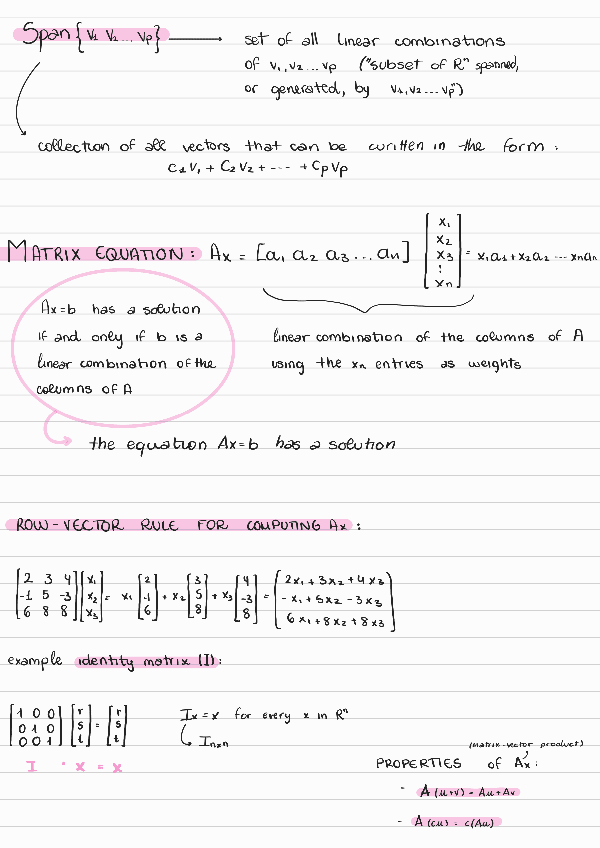 Span{v₁ v₂ ... vₚ} → set of all linear combinations
of v₁, v₂ ... vₚ ("subset of Rⁿ spanned,
or generated, by v₁, v₂ ... vₚ")
collection of all vectors that can be written in the form:
c₁v₁ + c₂v₂ + ---- + cₚvₚ
MATRIX EQUATION: Ax = [a₁ a₂ a₃ ... aₙ] [x₁ x₂ x₃ ⋮ xₙ] = x₁a₁+x₂a₂ ... xₙaₙ
Ax=b has a solution
if and only if b is a
linear combination of the
columns of A
linear combination of the columns of A
using the xₙ entries as weights
the equation Ax=b has a solution
ROW-VECTOR RULE FOR COMPUTING Ax:
[2 3 4] [x₁] = x₁ [2] + x₂ [3] + x₃ [4] = [2x₁ + 3x₂ + 4x₃]
[-1 5 -3] [x₂] [-1] [5] [-3] [-x₁ + 5x₂ - 3x₃]
[6 8 8] [x₃] [6] [8] [8] [6x₁ + 8x₂ + 8x₃]
example identity matrix (I):
[1 0 0] [r] = [r]
[0 1 0] [s] [s]
[0 0 1] [t] [t]
I · x = x
Ix = x for every x in Rⁿ
Iₙₓₙ
(matrix-vector product)
PROPERTIES of Ax:
- A(u+v) = Au + Av
- A(cu) = c(Au)